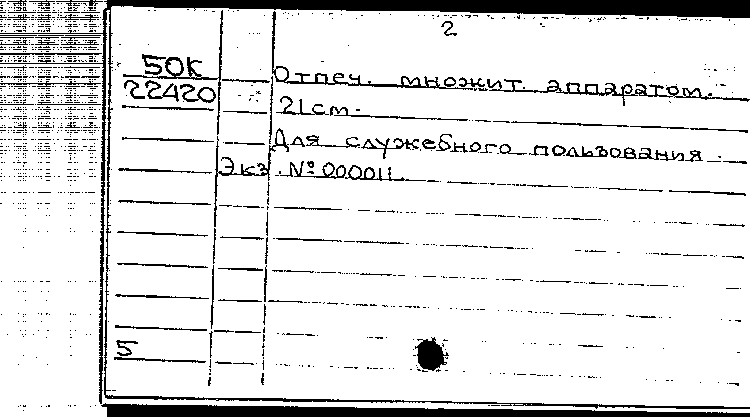 2
50К Отпеч. множит. аппаратом.
22420 21см.
Для служебного пользования.
Экз. № 000011.
5